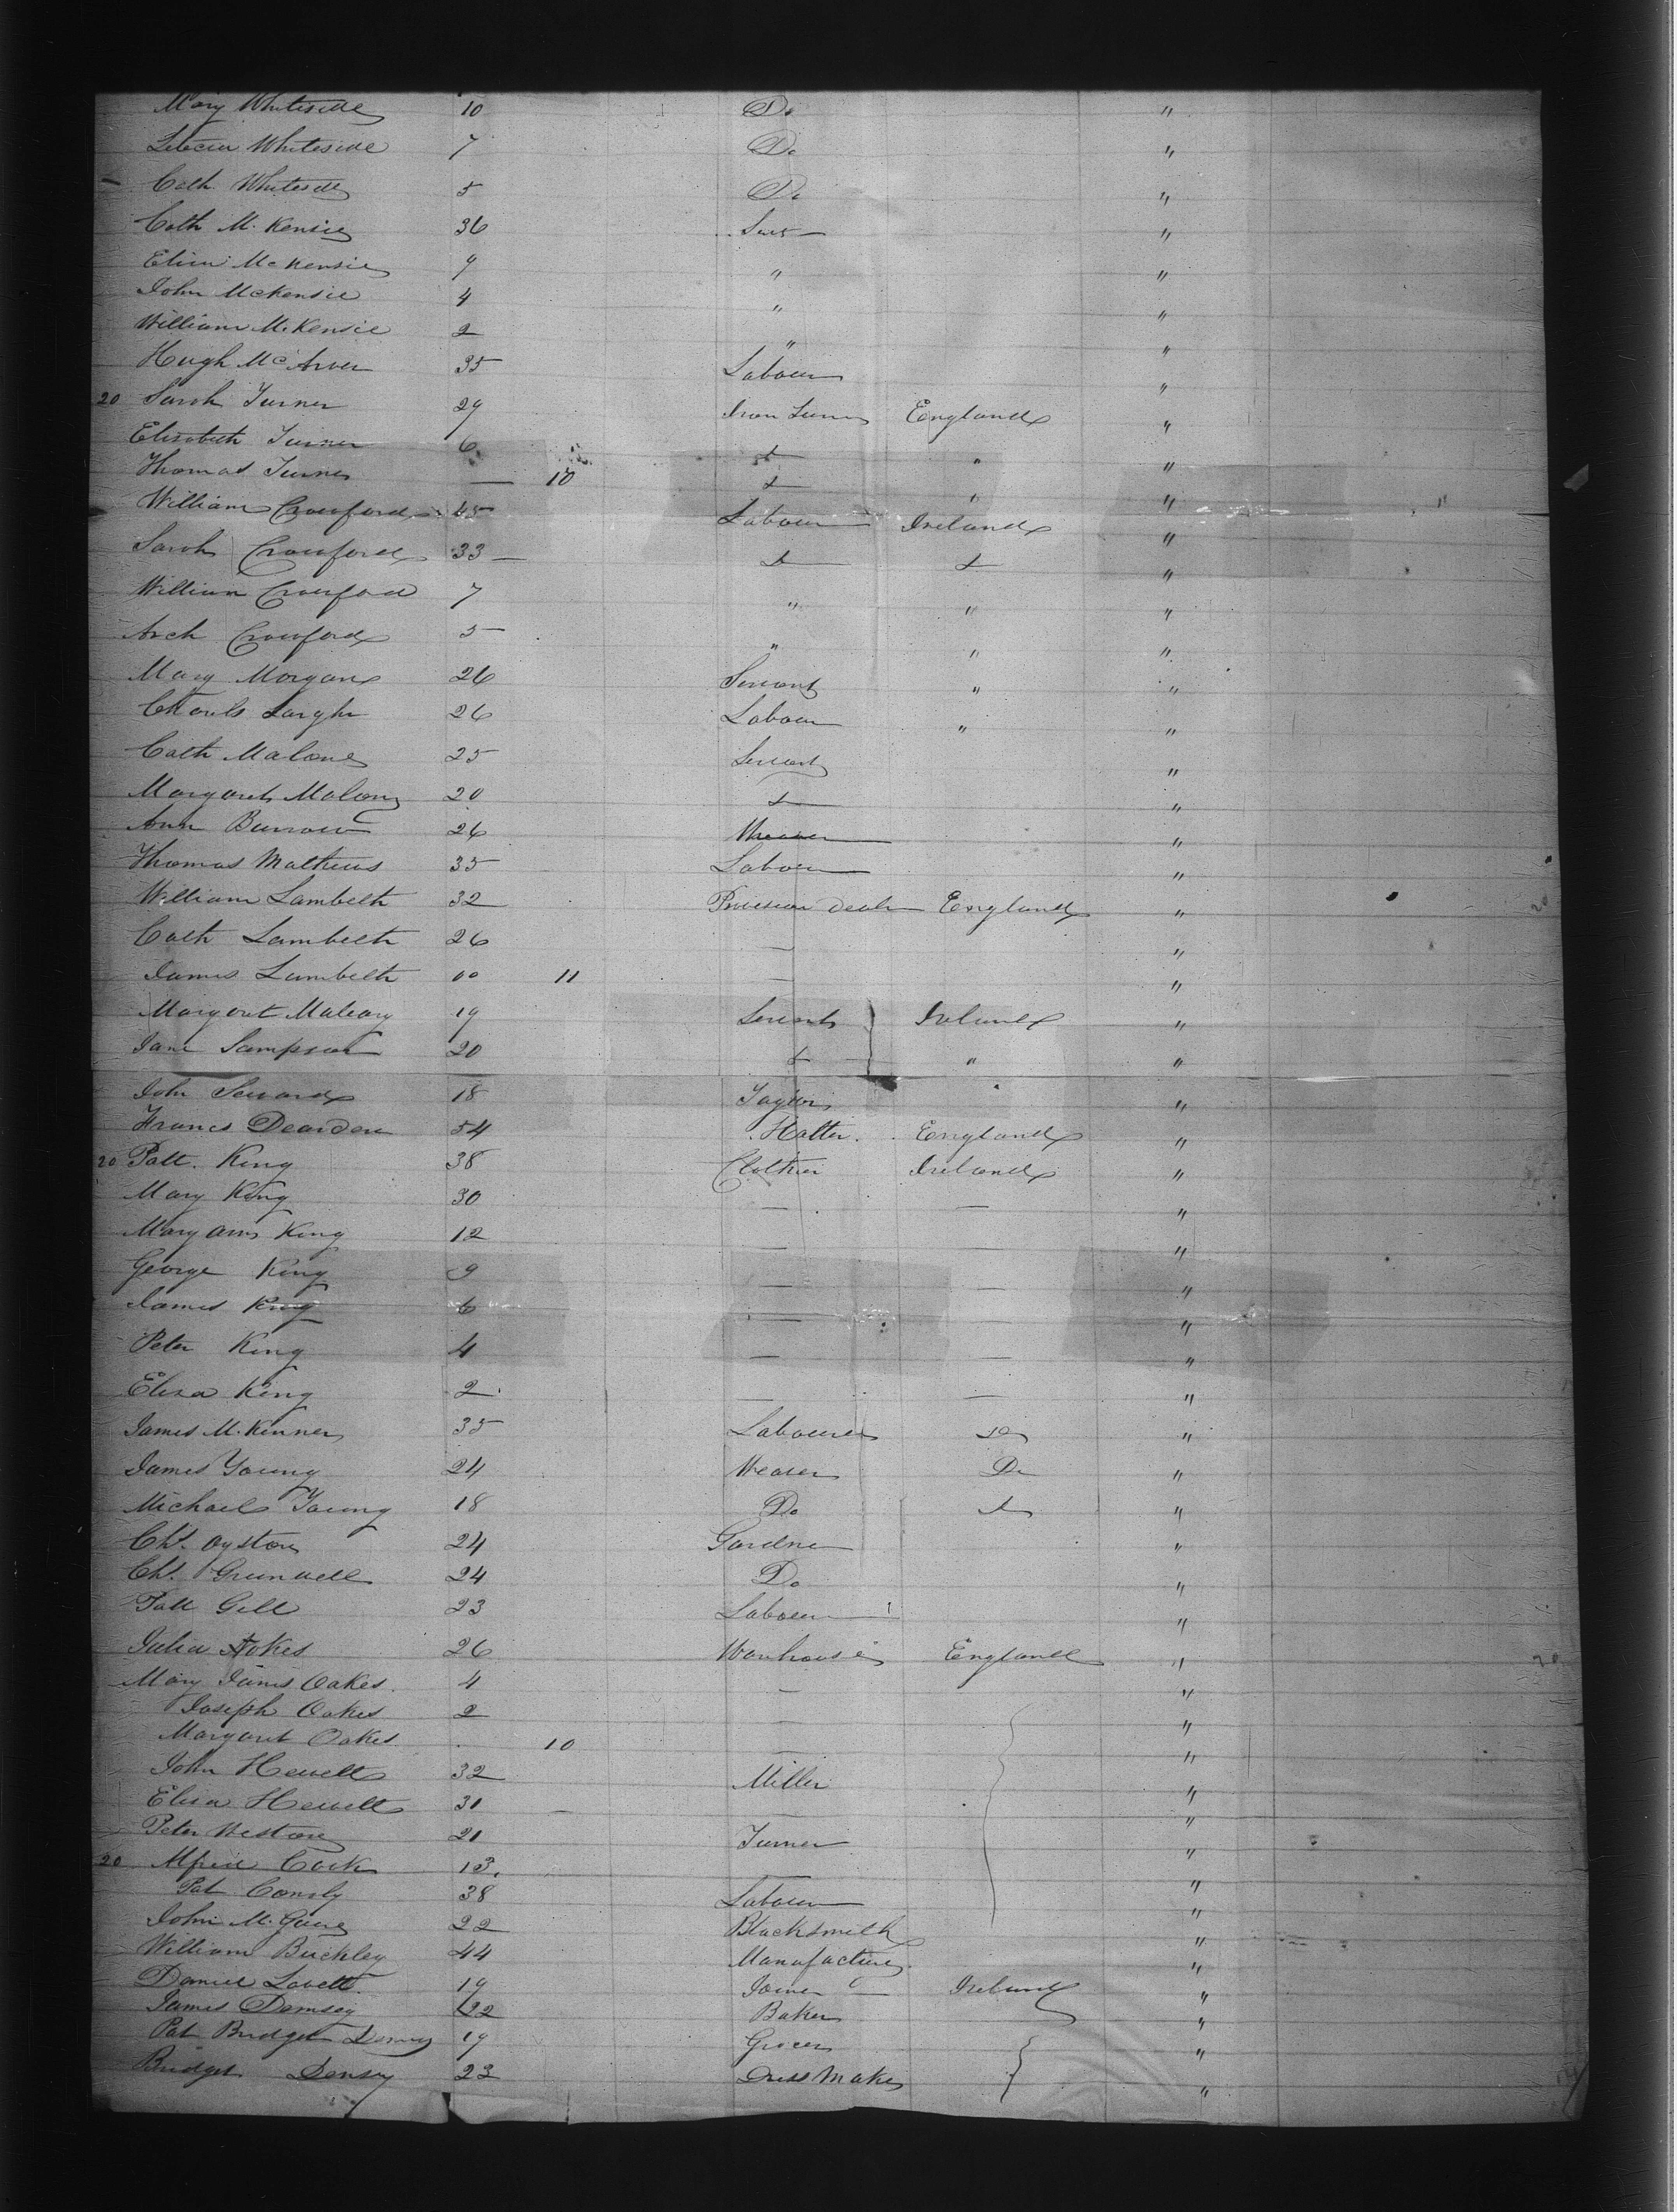 Mary Whiteside 10 Do "
Letecia Whiteside 7 Do "
Cath Whiteside 5 Do "
Cath McKensie 36 "
Eliza McKensie 9 " "
John McKensie 4 " "
William McKensie 2 " "
Hugh 35 Labour "
20 Sarah Turner 29 Iron Turner England "
Elizabeth Turner 6 " "
Thomas Turner — 10 " "
William Crawford 45 Labour Ireland "
Sarah Crawford 33 "
William Crawford 7 " " "
Arch Crawford 5 " " "
Mary Morgan 26 Servant " "
Charls 26 Labour " "
Cath Malone 25 Servant "
Margaret Malony 20 "
Ann Burrow 26 "
Thomas Mathews 35 Labour "
William Lambeth 32 Provision Dealer England "
Cath Lambeth 26 — "
James Lambeth 00 11 — "
Margaret 19 Servants Ireland "
Jane Sampson 20 " "
John Seward 18 Taylor "
Francis Dearden 54 Hatter England "
20 Patt. King 38 Clothier Ireland "
Mary King 30 — — "
Mary Ann King 12 — — "
George King 9 — — "
James King 6 — "
Peter King 4 — — "
Eliza King 2 — — "
James McKinner 35 Labourer Do "
James Young 24 Weaver Do "
Michael Young 18 Do "
Chs. Oyston 24 Gardner "
Chs. Grunwell 24 Do "
Patt Gill 23 Labour "
Julia 26 England "
Mary Jams Oakes 4 — "
Joseph Oakes 2 — "
Margaret Oakes 10 — "
John Hewett 32 Miller "
Eliza Hewett 31 — "
Peter Weston 21 Turner "
20 Alfred Cook 13 "
Pat 38 Labour "
John 22 Blacksmith "
William Buckley 44 Manufacturer "
Daniel Lovett 19 Joiner Ireland "
James Demsey 22 Baker "
Pat Bridget 19 Grocer "
Bridget Densey 23 Dress Maker "